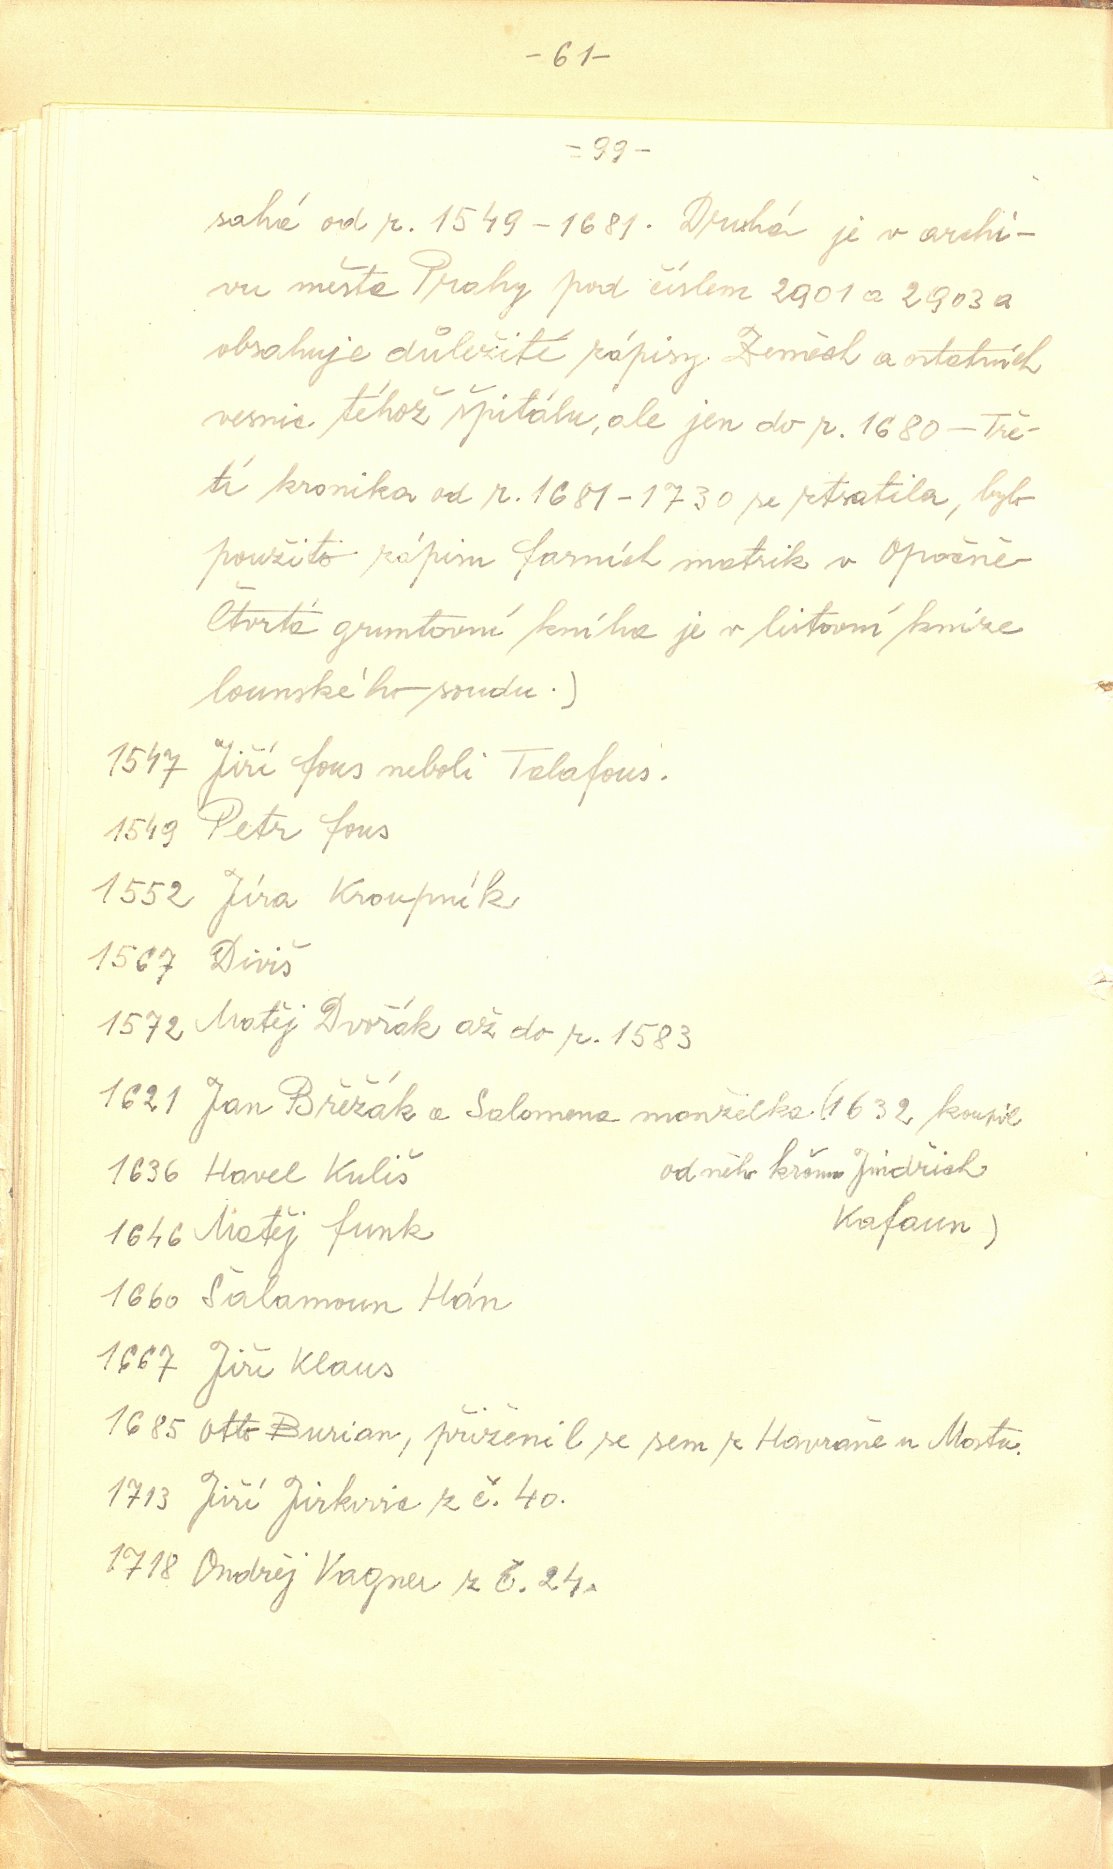 - 61 -
- 99 -
sahá od r. 1549 - 1681. Druhá je v archi-
vu města Prahy pod číslem 2901 a 2903 a
obsahuje důležité zápisy Zeměch a ostatních
vesnic téhož špitálu, ale jen do r. 1680 - Tře-
tí kronika od r. 1681 - 1730 se ztratila, bylo
použito zápisu farních matrik v Opočně
Čtvrtá gruntovní kniha je v listovní knize
lounského soudu.)
1547 Jiří fous neboli Talafous.
1549 Petr fous
1552 Jíra Kroupník
1567 Diviš
1572 Matěj Dvořák až do r. 1583
1621 Jan Břěžák a Salomena manželka (1632 koupil
1636 Havel Kuliš od něho krčmu Jindřich
1646 Matěj funk Kafaun)
1660 Šalamoun Hán
1667 Jiří Klaus
1685 Otto Burian, přiženil se sem z Havraně u Mostu.
1713 Jiří Jirkovic z č. 40.
1718 Ondřej Vagner z č. 24.